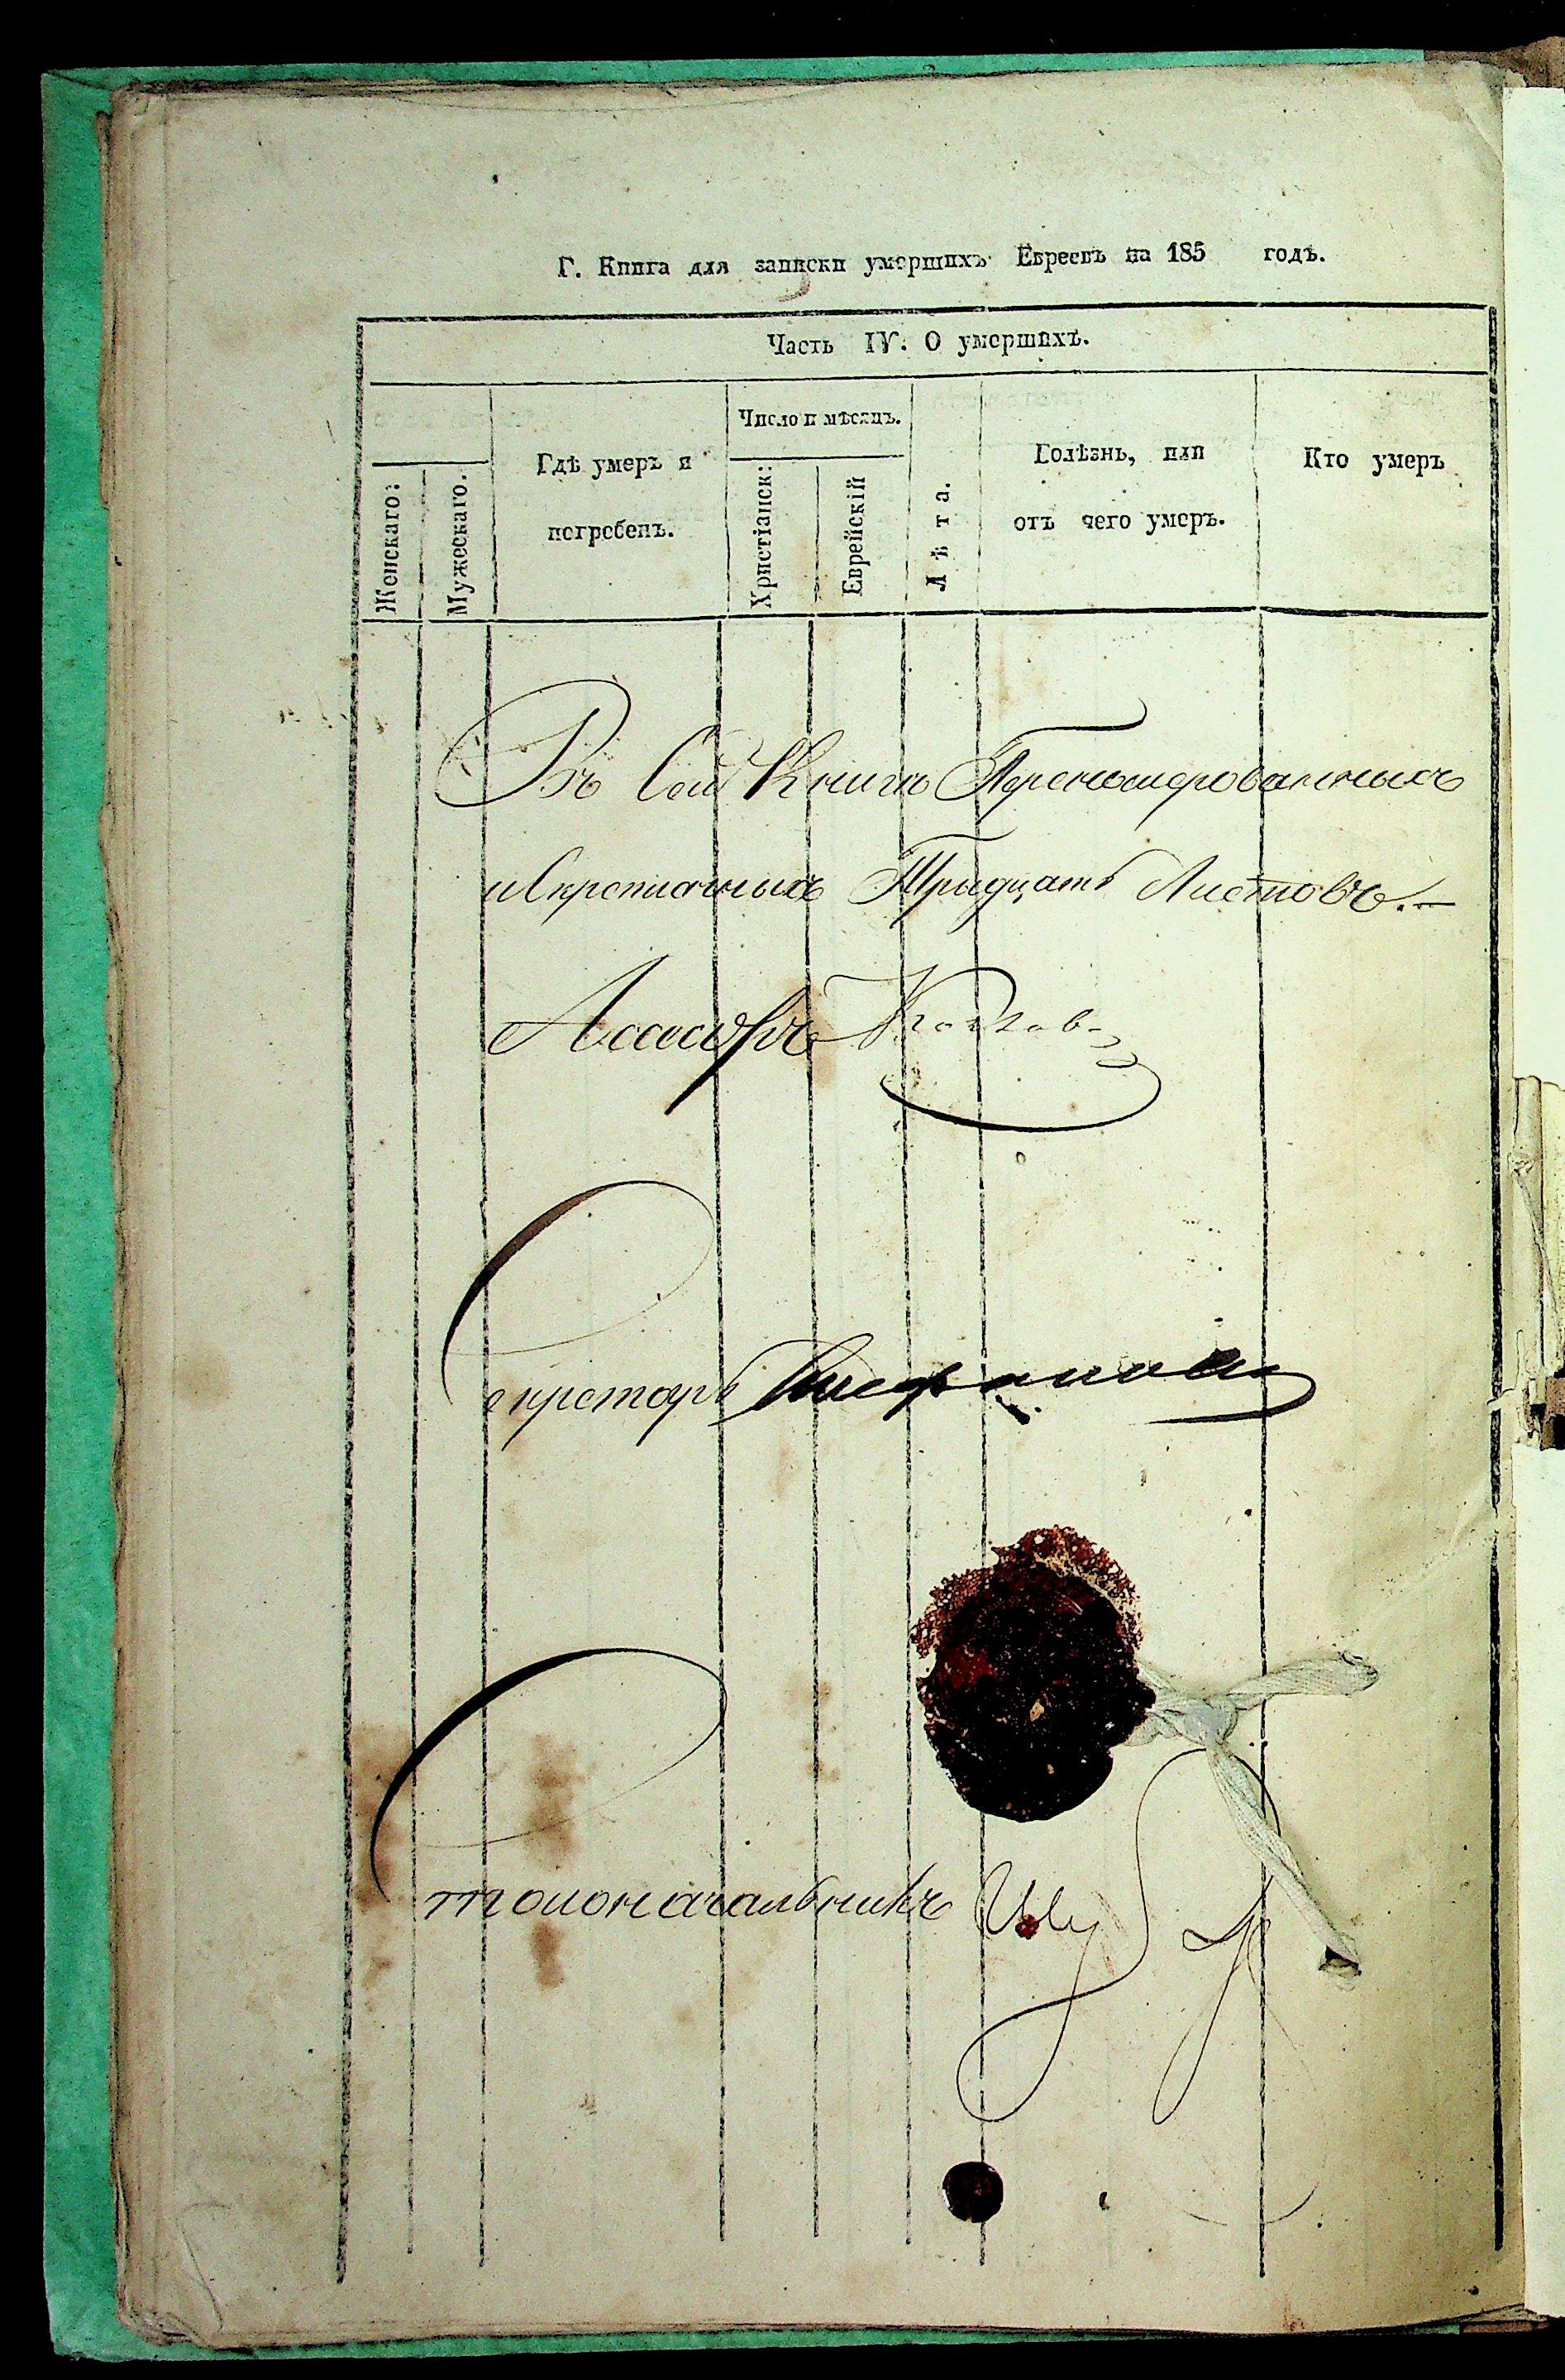 Г. Книга для записки умершихъ Евреевъ на 185 годъ.
Часть IV. О умершихъ.
Женскаго:
Мужескаго.
Гдѣ умеръ и
погребенъ.
Число и мѣсяцъ.
Христіанск:
Еврейскій
Лѣта.
Болѣзнь, или
отъ чего умеръ.
Кто умеръ
Въ Сей Книгѣ Перенумерованныхъ
и Скрепленныхъ Тридцать Листовъ.—
Ассесоръ
Секретарь
Столоначальникъ